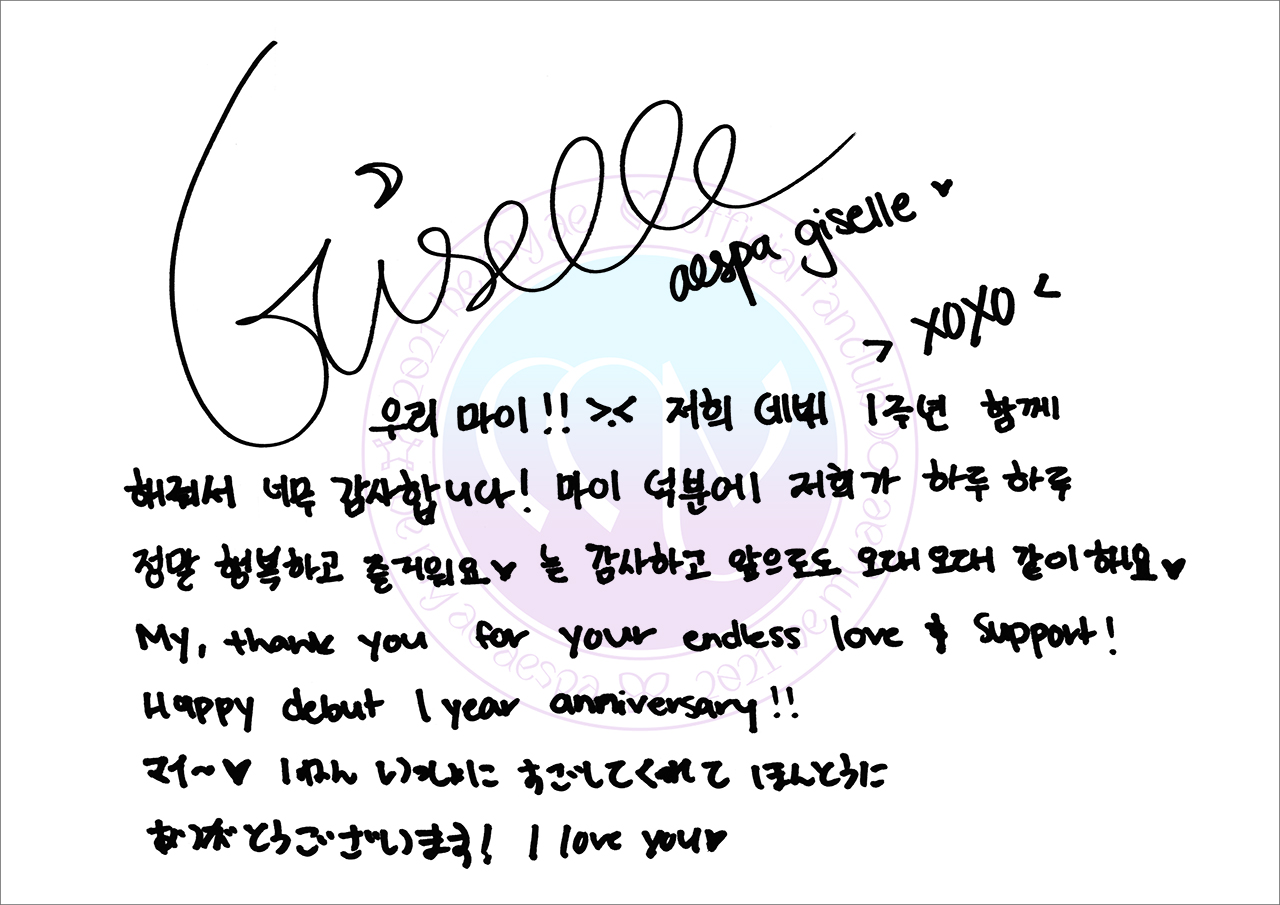 Giselle
aespa giselle ♥
> XOXO <
우리 마이!! >.< 저희 데뷔 1주년 함께
해줘서 너무 감사합니다! 마이 덕분에 저희가 하루하루
정말 행복하고 즐거워요♥ 늘 감사하고 앞으로도 오래오래 같이해요♥
My, thank you for your endless love & support!
Happy debut 1 year anniversary!!
マイ~♥ 1ねん いっしょに すごしてくれて ほんとうに
ありがとうございます! I love you♥
MY
official fanclub
2021 be my ae